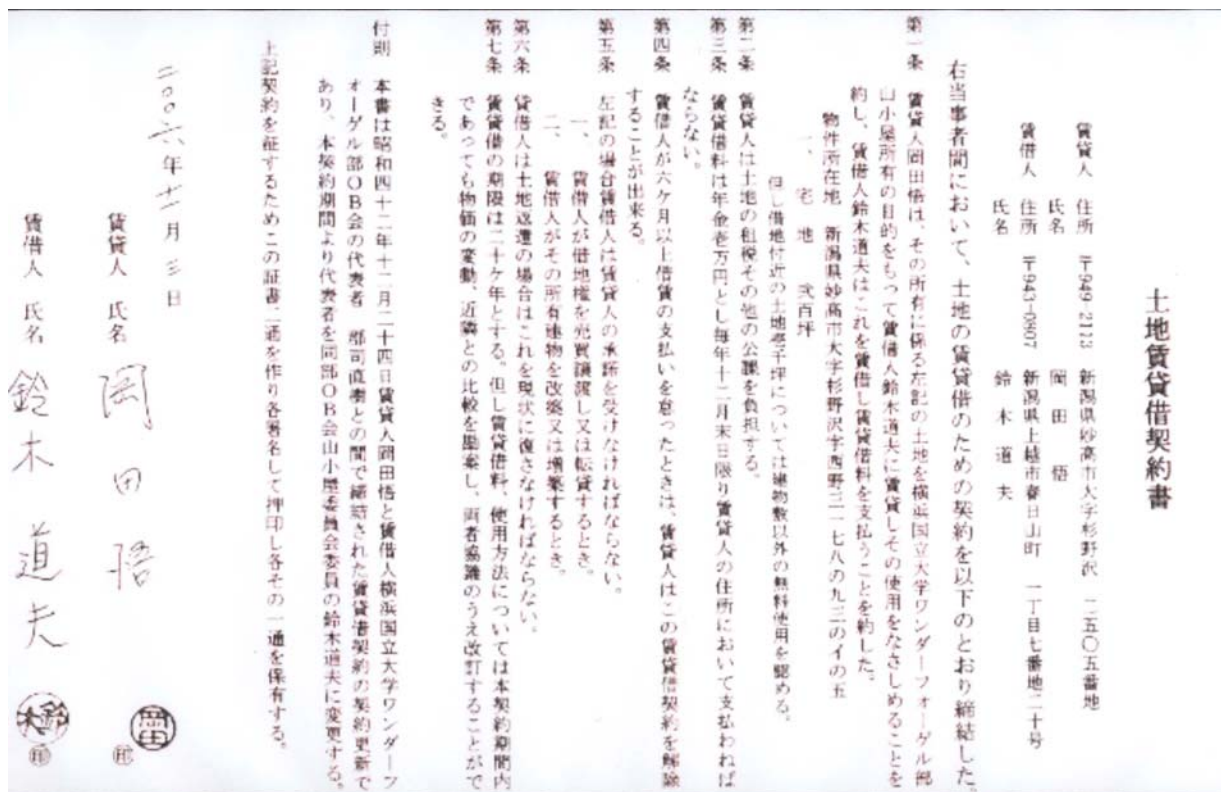 土地賃貸借契約書
賃貸人 住所 〒949-2113 新潟県妙高市大字杉野沢 二五〇五番地
氏名 岡田 悟
賃借人 住所 〒943-0807 新潟県上越市春日山町 一丁目七番地二十号
氏名 鈴木道夫
右当事者間において、土地の賃貸借のための契約を以下のとおり締結した。
第一条 賃貸人岡田悟は、その所有に係る左記の土地を横浜国立大学ワンダーフォーゲル部
山小屋所有の目的をもって賃借人鈴木道夫に賃貸しその使用をなさしめることを
約し、賃借人鈴木道夫はこれを賃借し賃貸借料を支払うことを約した。
物件所在地 新潟県妙高市大字杉野沢字西野三一七八の九三のイの五
一、 宅地 弐百坪
但し借地付近の土地壱千坪については建物敷以外の無料使用を認める。
第二条 賃貸人は土地の租税その他の公課を負担する。
第三条 賃貸借料は年金壱万円とし毎年十二月末日限り賃貸人の住所において支払わねば
ならない。
第四条 賃借人が六ケ月以上借賃の支払いを怠ったときは、賃貸人はこの賃貸借契約を解除
することが出来る。
第五条 左記の場合賃借人は賃貸人の承諾を受けなければならない。
一、 賃借人が借地権を売買譲渡し又は転貸するとき。
二、 賃借人がその所有建物を改築又は増築するとき。
第六条 賃借人は土地返還の場合はこれを現状に復さなければならない。
第七条 賃貸借の期限は二十ケ年とする。但し賃貸借料、使用方法については本契約期間内
であっても物価の変動、近隣との比較を勘案し、両者協議のうえ改訂することがで
きる。
付則 本書は昭和四十二年十二月二十四日賃貸人岡田悟と賃借人横浜国立大学ワンダーフ
ォーゲル部OB会の代表者 郡司直樹との間で締結された賃貸借契約の契約更新で
あり、本契約期間より代表者を同部OB会山小屋委員会委員の鈴木道夫に変更する。
上記契約を証するためこの証書二通を作り各署名して押印し各その一通を保有する。
二〇〇六年十二月三日
賃貸人 氏名 岡田悟 岡田 印
賃借人 氏名 鈴木道夫 鈴木 印